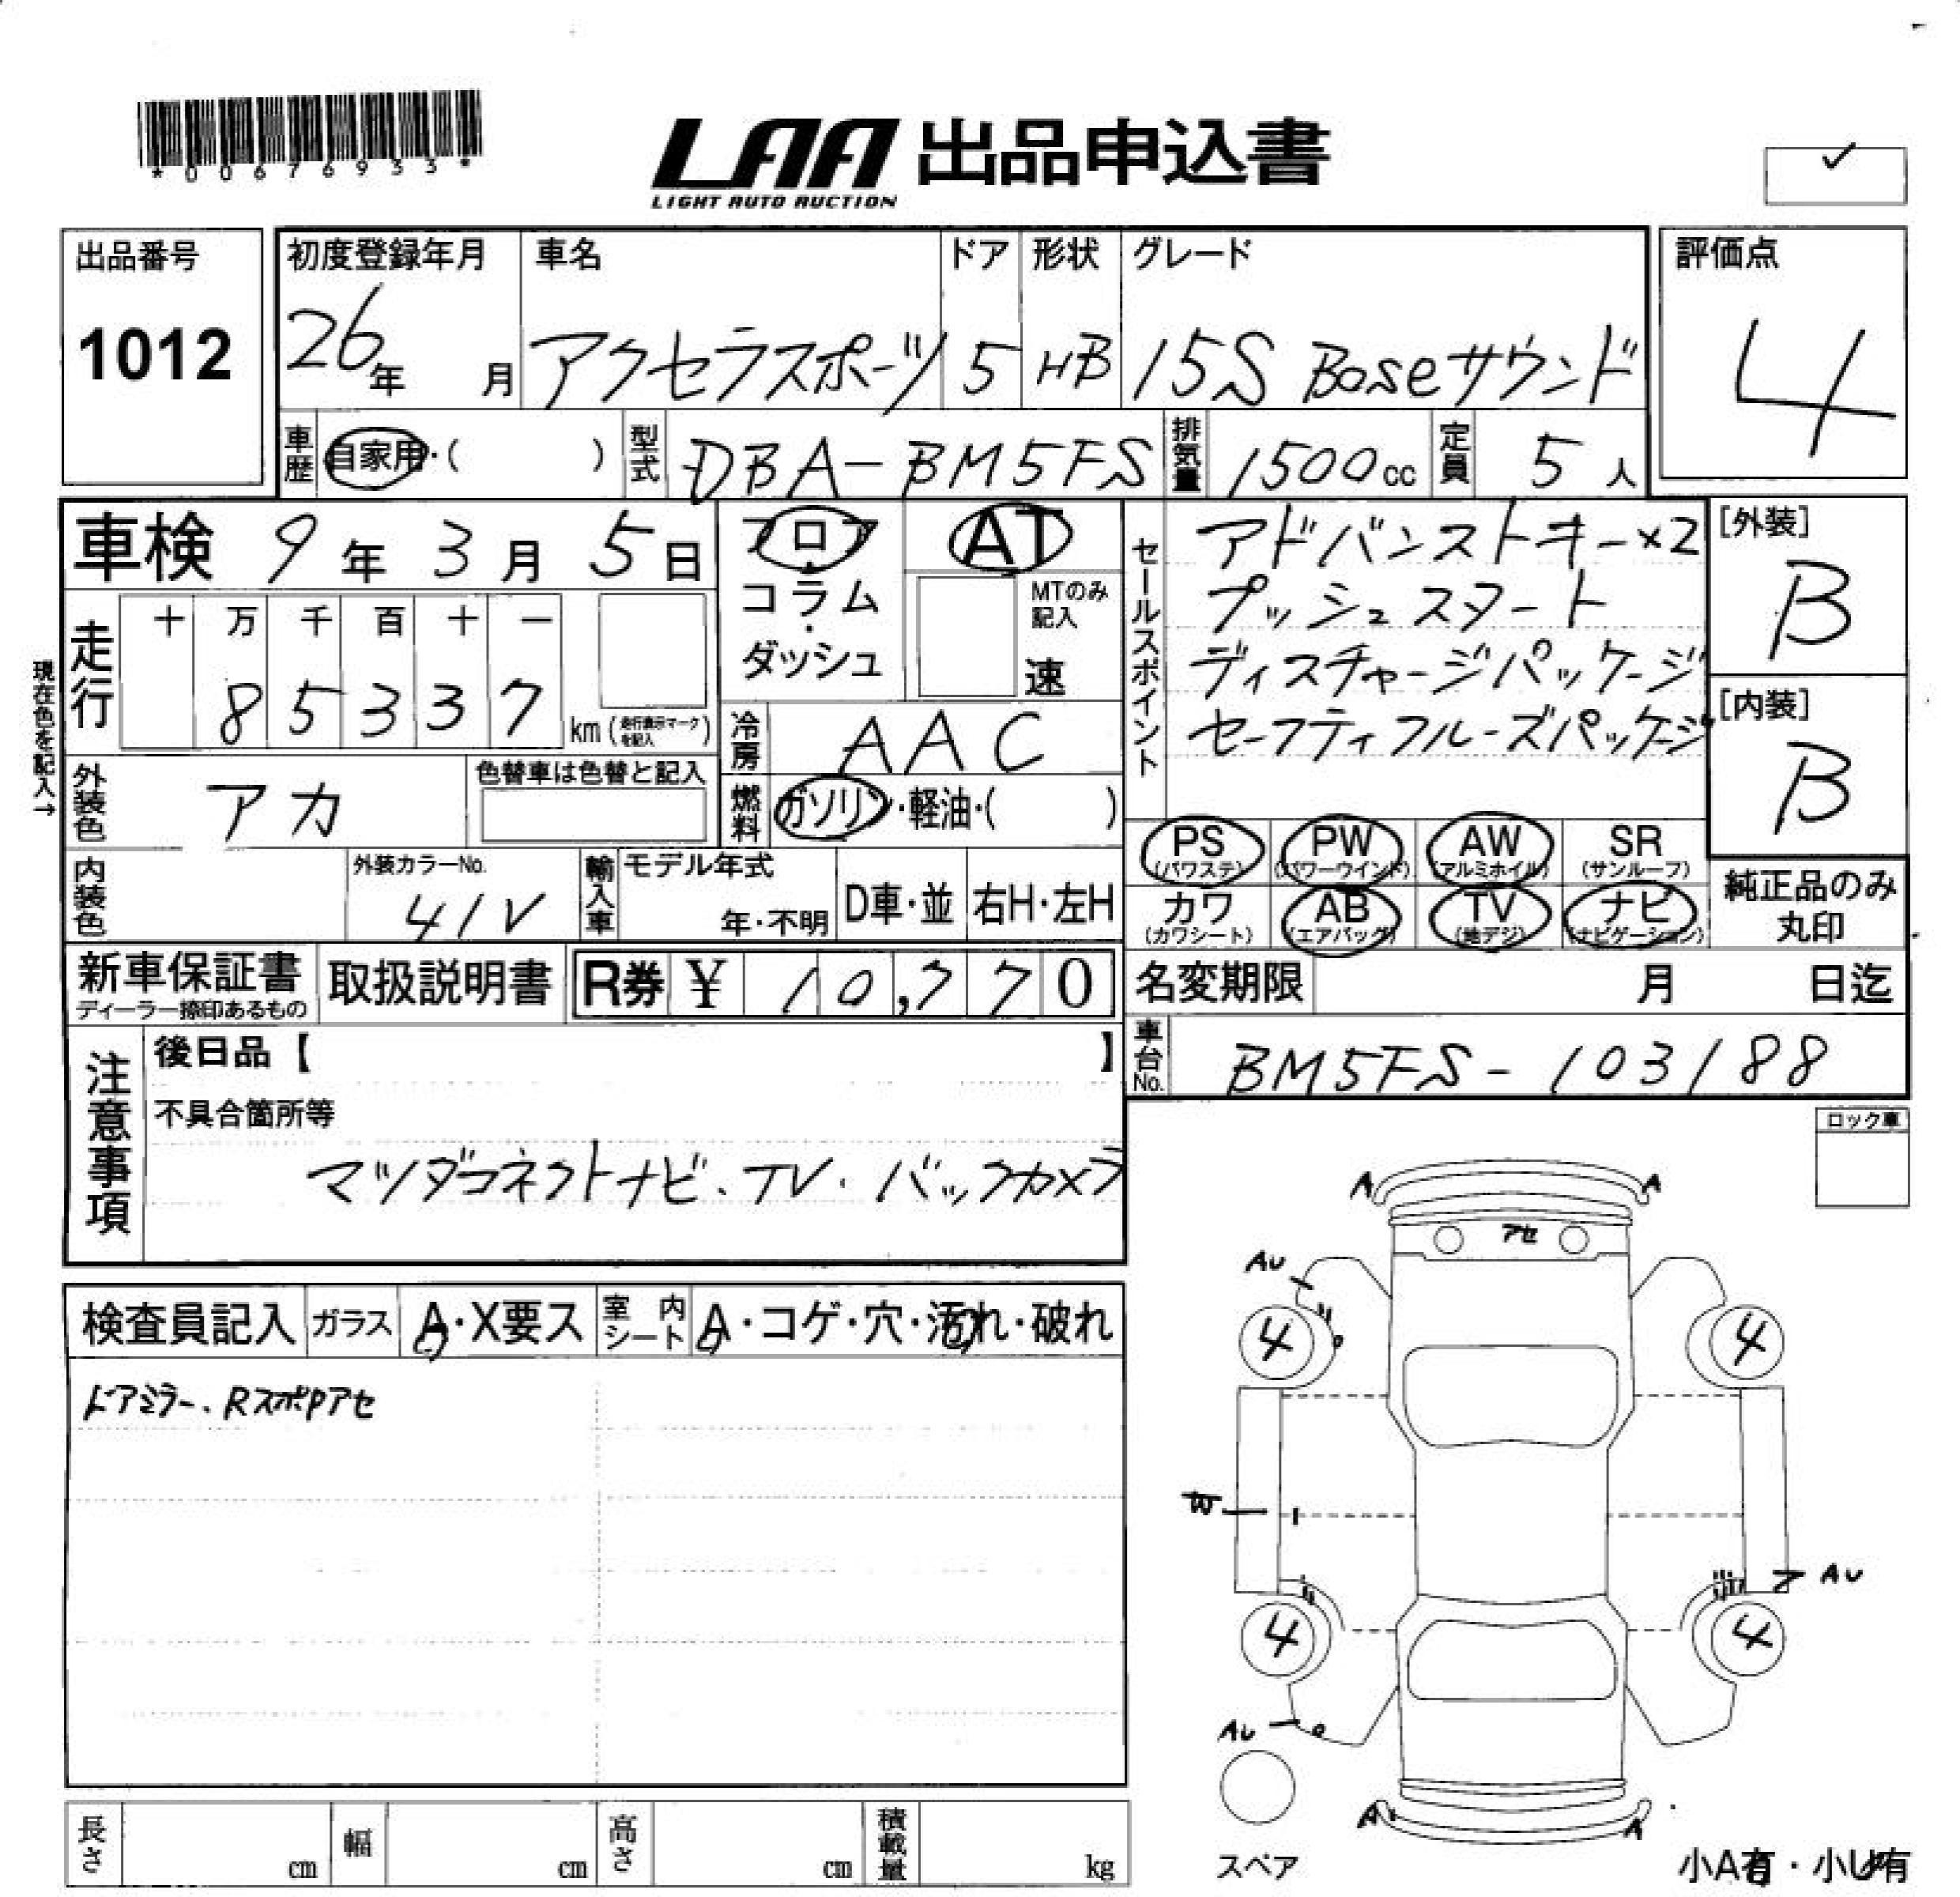 *00676933*
LAA 出品申込書
LIGHT AUTO AUCTION
✓
出品番号
1012
初度登録年月
26年 月
車名
アクセラスポーツ
ドア
5
形状
HB
グレード
15S Boseサウンド
評価点
4
車歴 自家用・( )
型式 DBA-BM5FS
排気量 1500cc
定員 5人
車検 9年 3月 5日
フロア
コラム
・
ダッシュ
AT
MTのみ記入
速
セールスポイント
アドバンストキー×2
プッシュスタート
ディスチャージパッケージ
セーフティクルーズパッケージ
[外装]
B
[内装]
B
現在色を記入→
走行 十 万 千 百 十 一
85337 km(走行表示マークを記入)
冷房 AAC
外装色 アカ
色替車は色替と記入
燃料 ガソリン・軽油・( )
PS (パワステ)
PW (パワーウインド)
AW (アルミホイル)
SR (サンルーフ)
カワ (カワシート)
AB (エアバッグ)
TV (地デジ)
ナビ (ナビゲーション)
純正品のみ
丸印
内装色
外装カラーNo.
41V
輸入車
モデル年式
年・不明
D車・並
右H・左H
新車保証書
ディーラー捺印あるもの
取扱説明書
R券 ¥ 10,770
名変期限 月 日迄
車台No. BM5FS-103188
注意事項
後日品【 】
不具合箇所等
マツダコネクトナビ、TV・バックカメラ
ロック車
検査員記入
ガラス A・X要ス
室内シート A・コゲ・穴・汚れ・破れ
ドアミラー、RスポPアセ
A A
アセ
AU
4 4
W
AU
4 4
AU
A A
スペア
小A有・小U有
長さ cm
幅 cm
高さ cm
積載量 kg